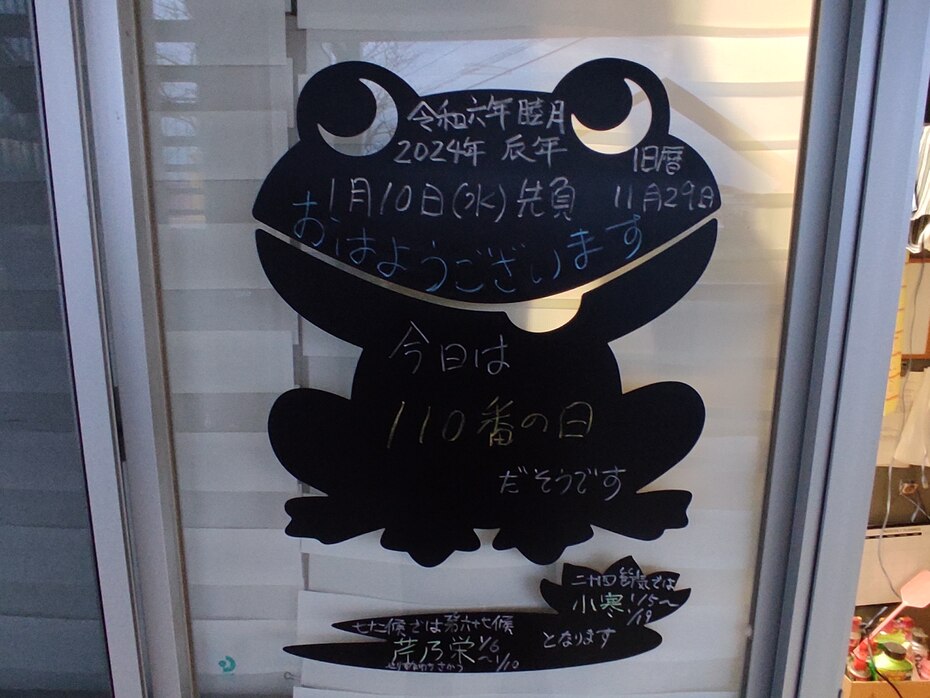 令和六年 睦月
2024年 辰年
旧暦
1月10日(水)先負
11月29日
おはようございます
今日は
110番の日
だそうです
二十四節気では
小寒 1/5〜
1/19
七十二候では第六十七候
となります
芹乃栄 1/6
〜1/10
せりすなわちさかう